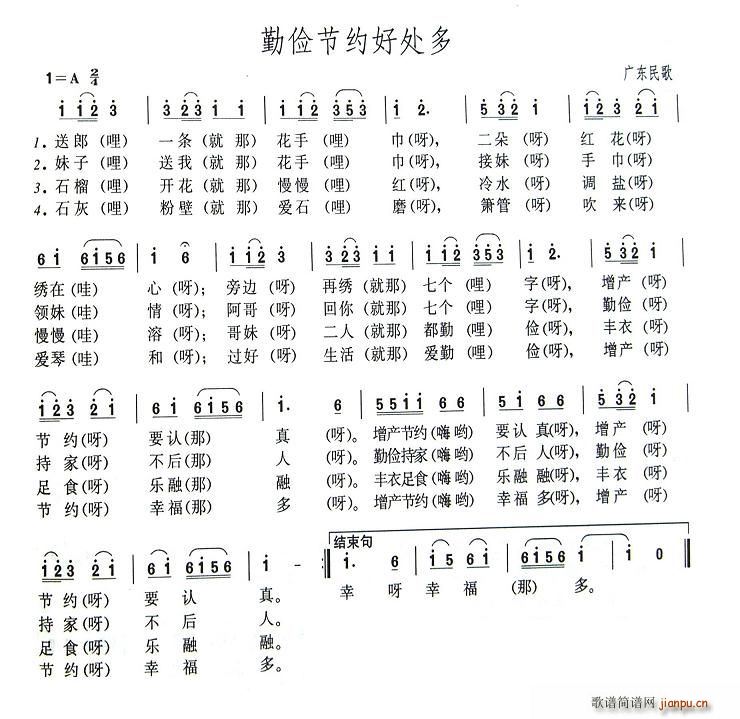 勤俭节约好处多
1=A 2/4
广东民歌
i i i 2 3 | 3 2 3 i i | i i 2 3 5 3 | i 2. | 5 3 2 i | i 2 3 2 i |
1. 送郎(哩) 一条(就 那) 花手(哩) 巾(呀), 二朵(呀) 红花(呀)
2. 妹子(哩) 送我(就 那) 花手(哩) 巾(呀), 接妹(呀) 手巾(呀)
3. 石榴(哩) 开花(就 那) 慢慢(哩) 红(呀), 冷水(呀) 调盐(呀)
4. 石灰(哩) 粉壁(就 那) 爱石(哩) 磨(呀), 箫管(呀) 吹来(呀)
6 i 6 i 5 6 | i 6 | i i 2 3 | 3 2 3 i i | i i 2 3 5 3 | i 2. | 5 3 2 i |
绣在(哇) 心(呀); 旁边(呀) 再绣(就那) 七个(哩) 字(呀), 增产(呀)
领妹(哇) 情(呀); 阿哥(呀) 回你(就那) 七个(哩) 字(呀), 勤俭(呀)
慢慢(哇) 溶(呀); 哥妹(呀) 二人(就那) 都勤(哩) 俭(呀), 丰衣(呀)
爱琴(哇) 和(呀); 过好(呀) 生活(就那) 爱勤(哩) 俭(呀), 增产(呀)
i 2 3 2 i | 6 i 6 i 5 6 | i. 6 | 5 5 i i 6 6 | 5 i 6 6 | 5 3 2 i |
节约(呀) 要认(那) 真 (呀)。 增产节约(嗨哟) 要认真(呀), 增产(呀)
持家(呀) 不后(那) 人 (呀)。 勤俭持家(嗨哟) 不后人(呀), 勤俭(呀)
足食(呀) 乐融(那) 融 (呀)。 丰衣足食(嗨哟) 乐融融(呀), 丰衣(呀)
节约(呀) 幸福(那) 多 (呀)。 增产节约(嗨哟) 幸福多(呀), 增产(呀)
结束句
i 2 3 2 i | 6 i 6 i 5 6 | i - :‖ i. 6 | i 5 6 i | 6 i 5 6 i | i 0 ‖
节约(呀) 要 认 真。 幸 呀 幸 福 (那) 多。
持家(呀) 不 后 人。
足食(呀) 乐 融 融。
节约(呀) 幸 福 多。
歌谱简谱网
jianpu.cn